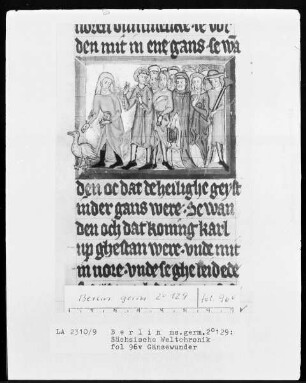 den mit in ene gans. se wā
den oc dat de heilighe geyst
in der gans were. Se wan
den och dat koning karl
up ghestan were. unde mit
in vore. unde se ghe seide de
Berlin germ 2° 129 fol. 96v
LA 2310/9 Berlin ms.germ.2°129:
Sächsische Weltchronik
fol 96v Gänsewunder